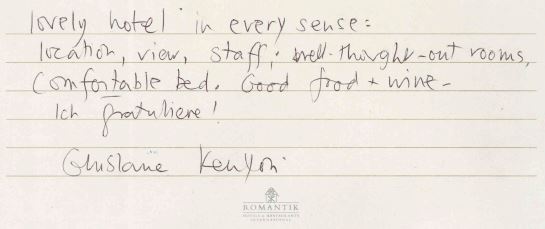 lovely hotel in every sense:
location, view, staff, well-thought-out rooms,
Comfortable bed. Good food + wine -
Ich gratuliere!
Ghislaine Kenyon
ROMANTIK
HOTELS & RESTAURANTS
INTERNATIONAL